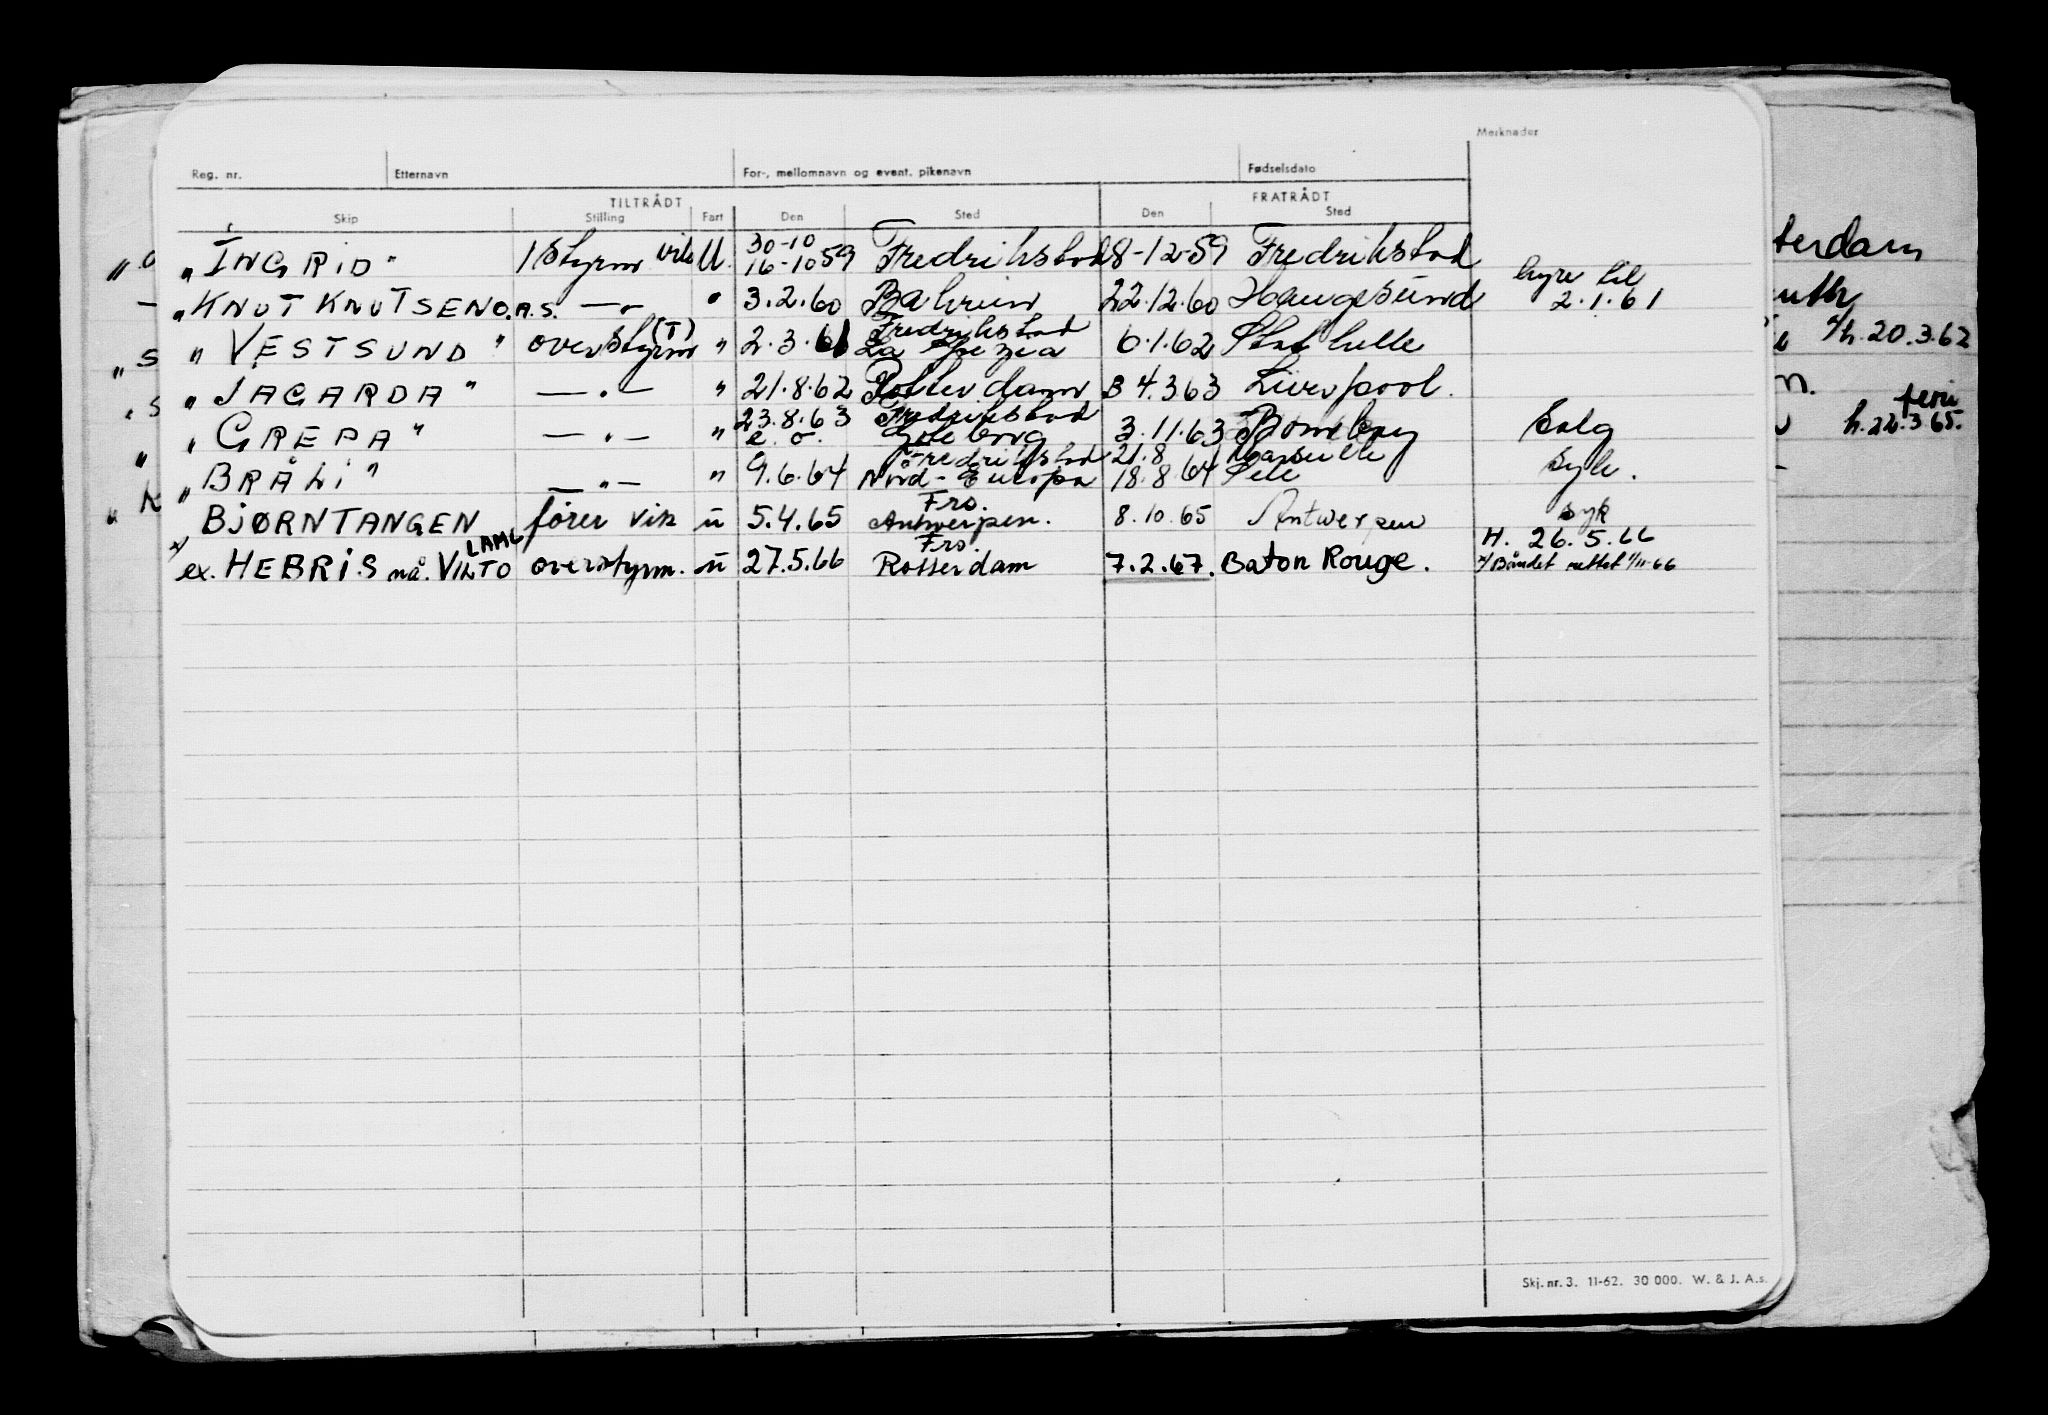 Merknader
Reg. nr. Etternavn For-, mellomnavn og event. pikenavn Fødselsdato
TILTRÅDT FRATRÅDT
Skip Stilling Fart Den Sted Den Sted
30-10
„ INGRID " 1 Styrm vik U. 16-10 59 Fredrikstad 18-12-59 Fredrikstad
hyre til
„ KNUT KNUTSEN O.A.S. —„— " 3.2.60 Bahrein 22.12.60 Haugesund 2.1.61
(T) Fredrikstad
„ VESTSUND " overstyrm " 2.3.61 La Spezia 6.1.62 Stathelle
„ JAGARDA " —„— " 21.8.62 Rotterdam 4.3.63 Liverpool.
23.8.63 Fredrikstad
„ GREPA " —„— " e. o. Gøteborg 3.11.63 Bombay Salg
Fredrikstad 21.8 Marseille
„ BRÅLI " —„— " 9.6.64 Nord-Europa 18.8.64 Sete Syk.
Frs.
BJØRNTANGEN fører vik u 5.4.65 Antwerpen. 8.10.65 Antwerpen syk
LAMG Frs. H. 26.5.66
x/ ex. HEBRIS nå. VINTO overstyrm. u 27.5.66 Rotterdam 7.2.67. Baton Rouge. x/ Båndet rettet 1/11-66
terdam
h. 20.3.62
feri
h. 22.3.65.
Skj. nr. 3. 11-62. 30 000. W. & J. A.s.